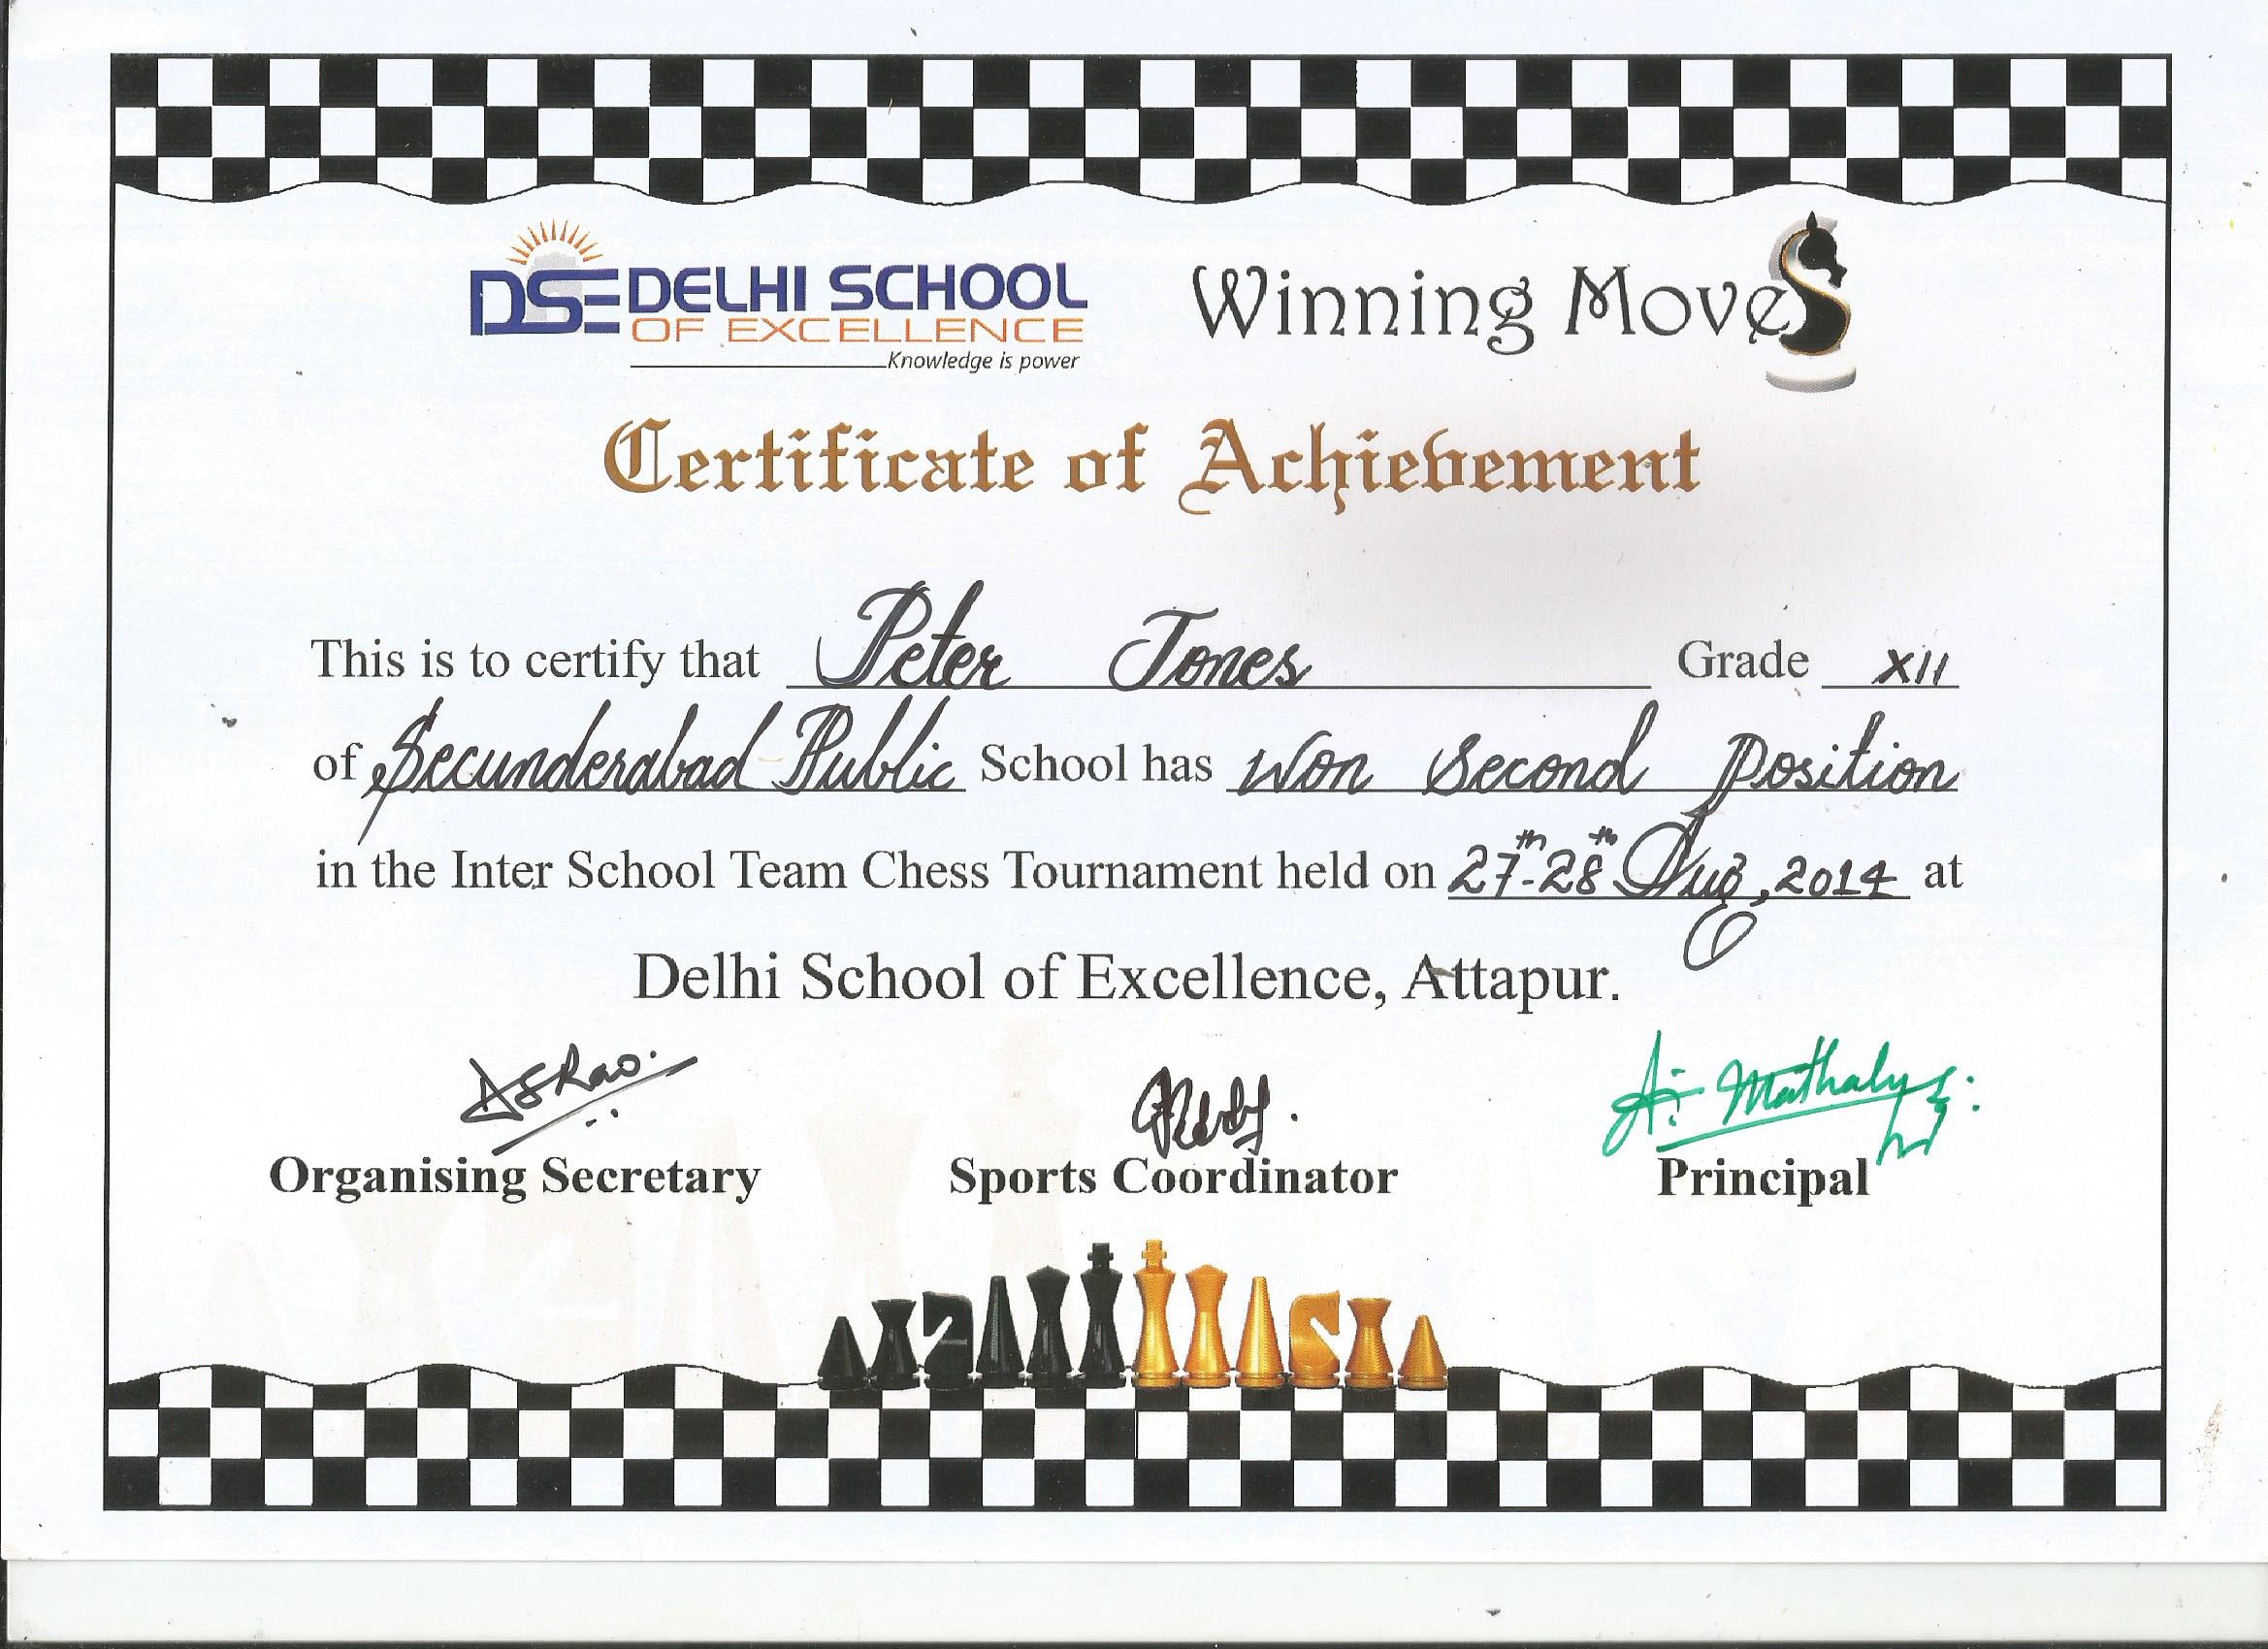 DSE DELHI SCHOOL
OF EXCELLENCE
Knowledge is power
Winning Moves
Certificate of Achievement
This is to certify that Peter Jones Grade XII
of Secunderabad Public School has Won Second Position
in the Inter School Team Chess Tournament held on 27th-28th Aug, 2014 at
Delhi School of Excellence, Attapur.
Organising Secretary Sports Coordinator Principal